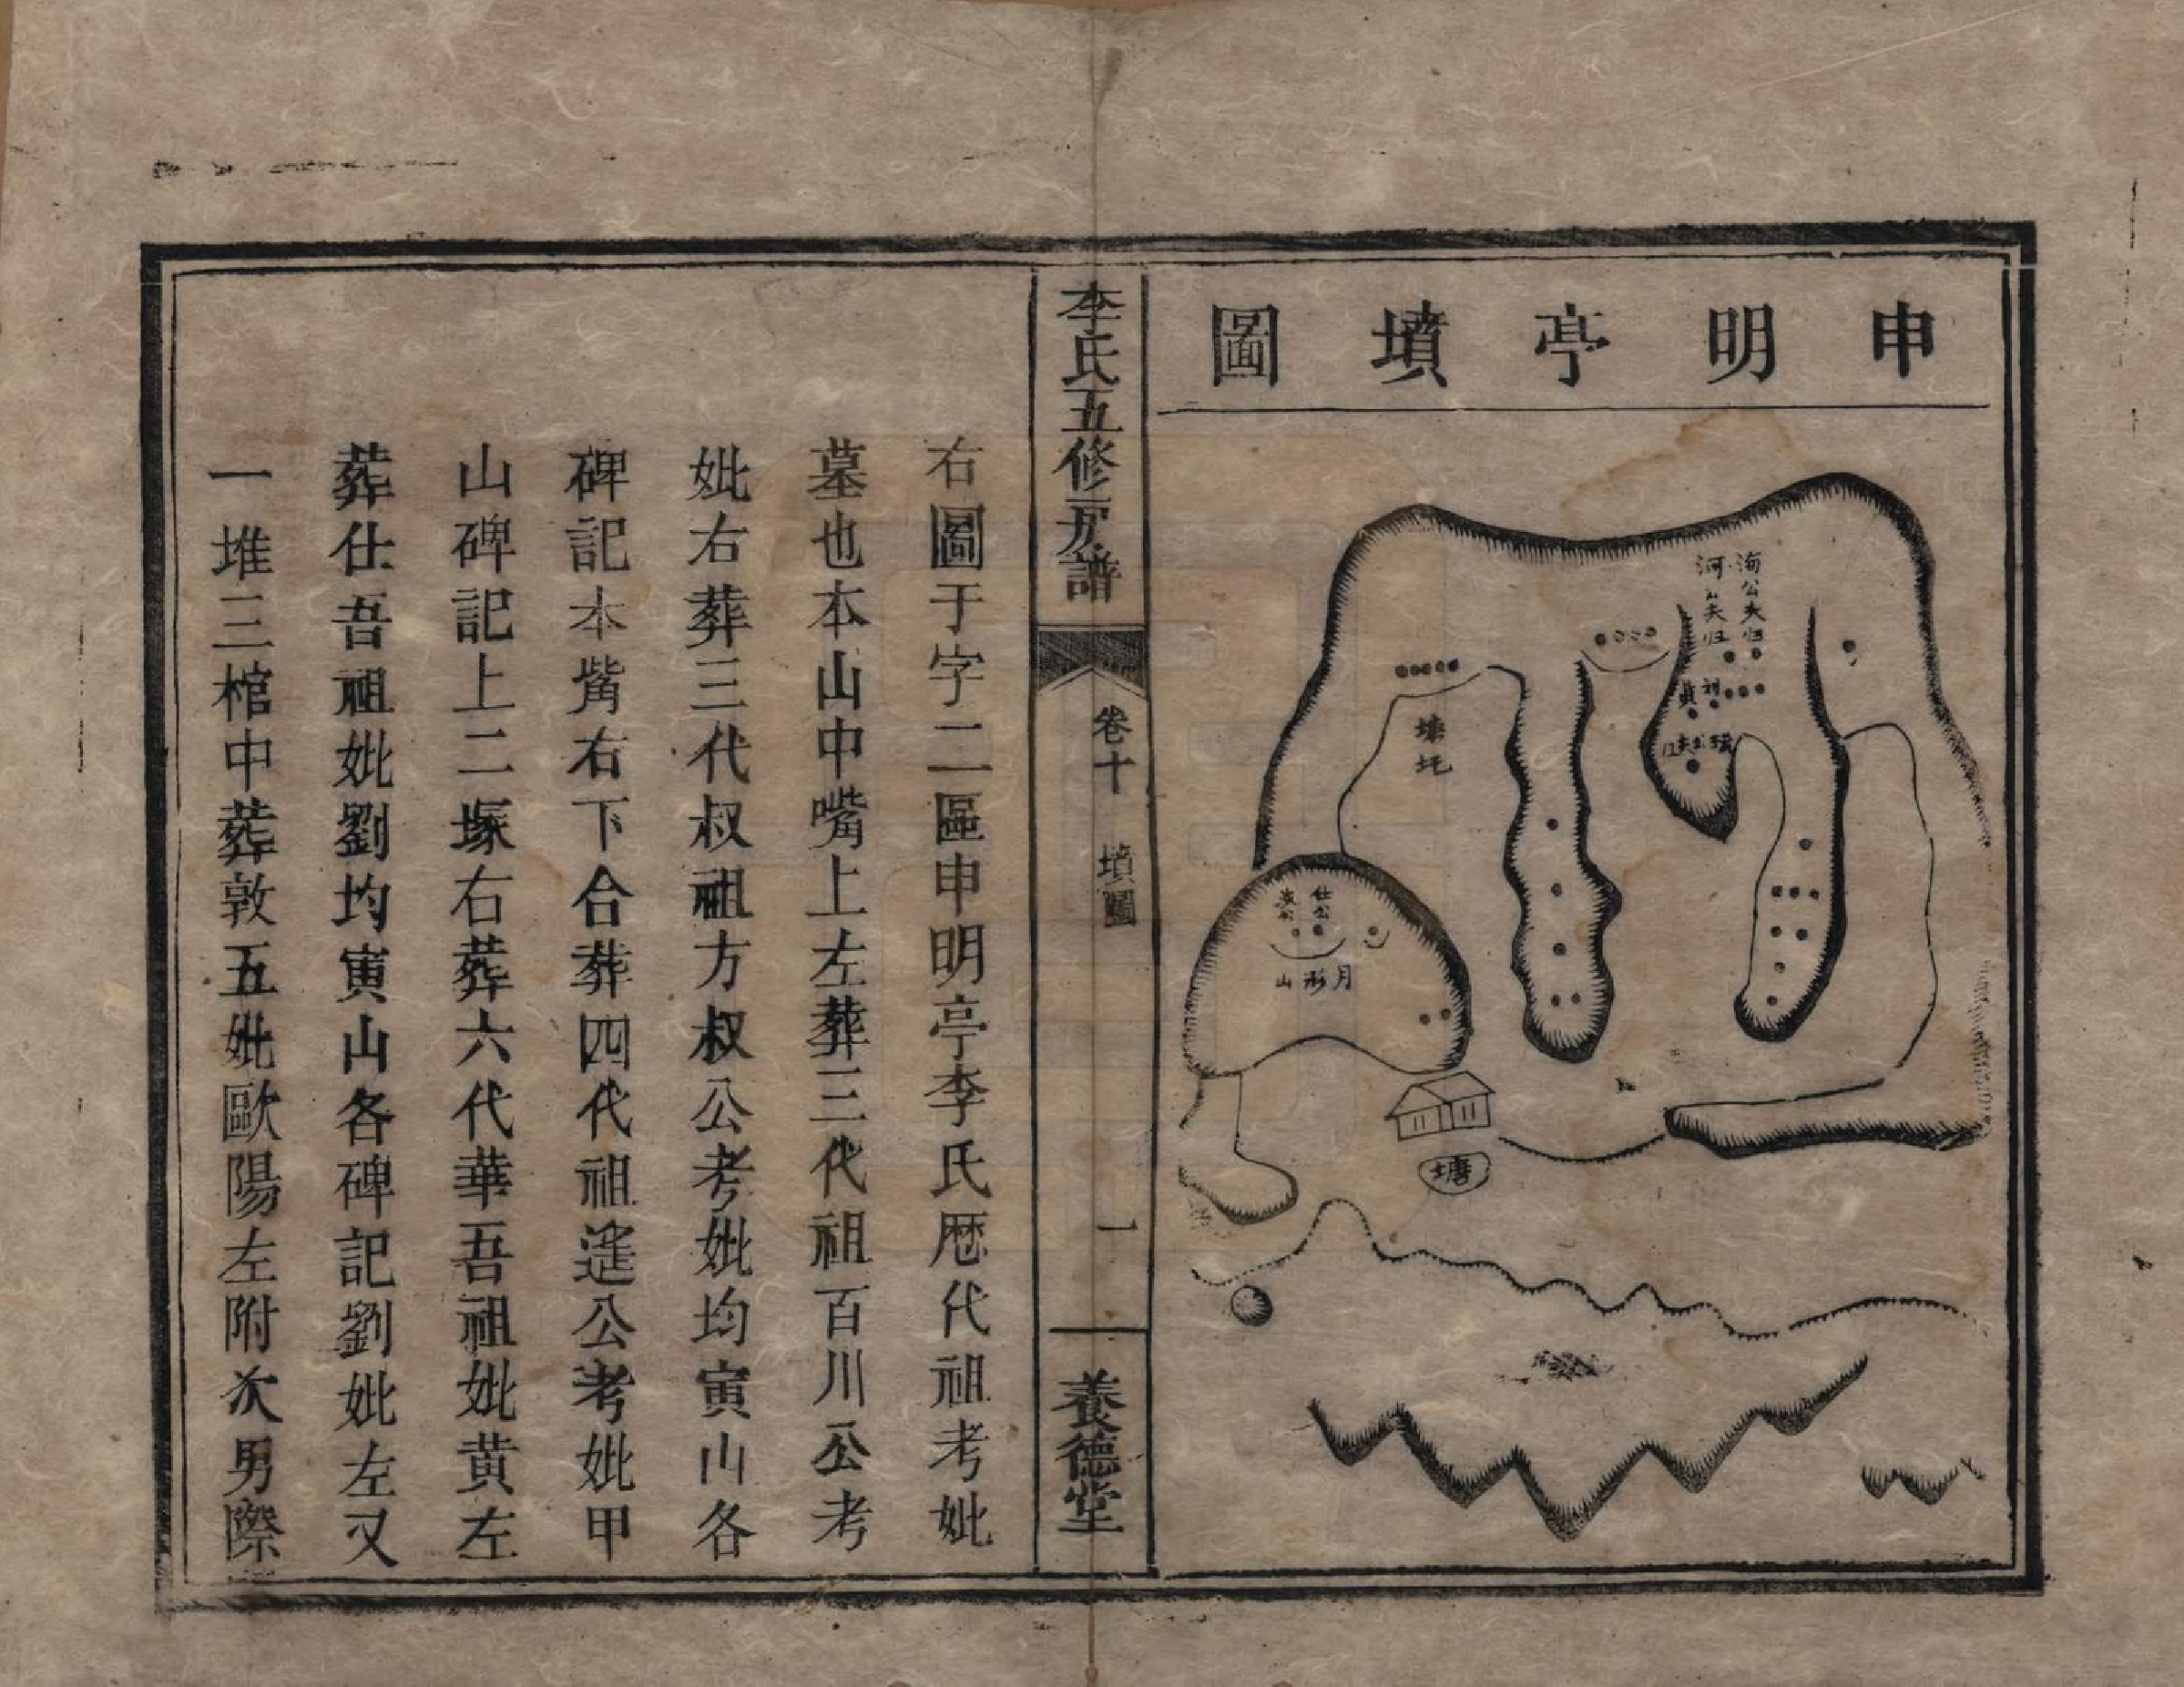 申明亭墳圖
海公夫妇
河公夫妇
塘
月形山
仕公
李氏五修房譜
卷十
墳圖
一
養德堂
右圖于字二區申明亭李氏歴代祖考妣
墓也本山中嘴上左葬三代祖百川公考
妣右葬三代叔祖方叔公考妣均寅山各
碑記本觜右下合葬四代祖遙公考妣甲
山碑記上二塚右葬六代華吾祖妣黃左
葬仕吾祖妣劉均寅山各碑記劉妣左又
一堆三棺中葬敦五妣歐陽左附次男際